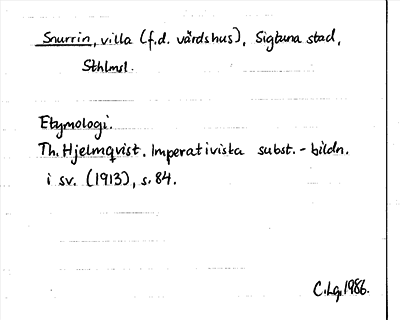 Snurrin, villa (f.d. värdshus), Sigtuna stad,
Sthlmsl.
Etymologi.
Th. Hjelmqvist. Imperativiska subst.-bildn.
i sv. (1913), s. 84.
C.Lg. 1986.